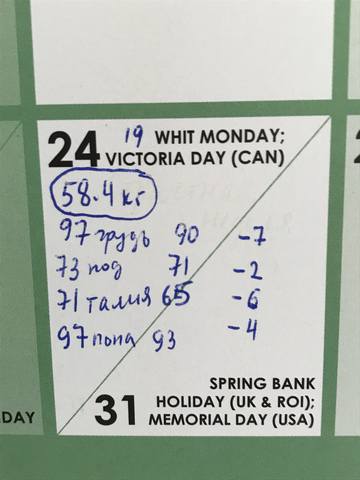 24 19 WHIT MONDAY;
VICTORIA DAY (CAN)
58.4 кг
97 грудь 90 -7
73 под 71 -2
71 талия 65 -6
97 попа 93 -4
SPRING BANK
31 HOLIDAY (UK & ROI);
DAY MEMORIAL DAY (USA)